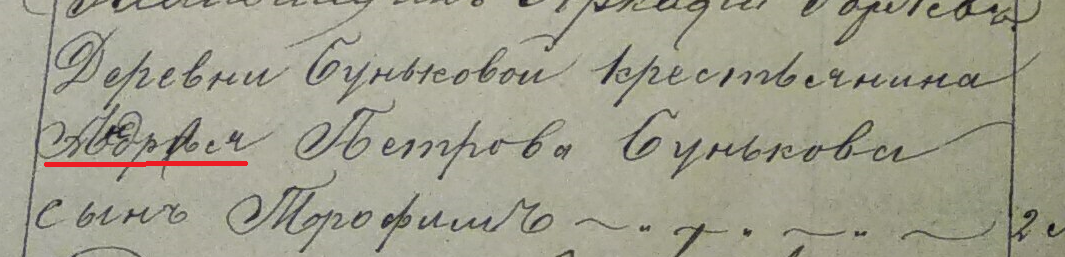 Аркадiй
Деревни Буньковой крестьянина
Андрея Петрова Бунькова
сынъ Трофимъ 2